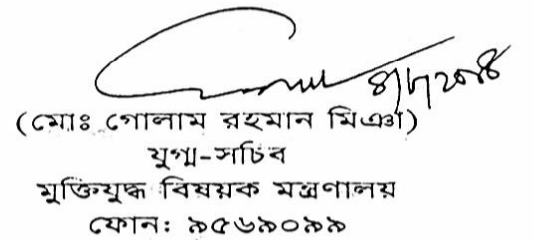 (মোঃ গোলাম রহমান মিঞা)
যুগ্ম-সচিব
মুক্তিযুদ্ধ বিষয়ক মন্ত্রণালয়
ফোন: ৯৫৬৯০৯৯